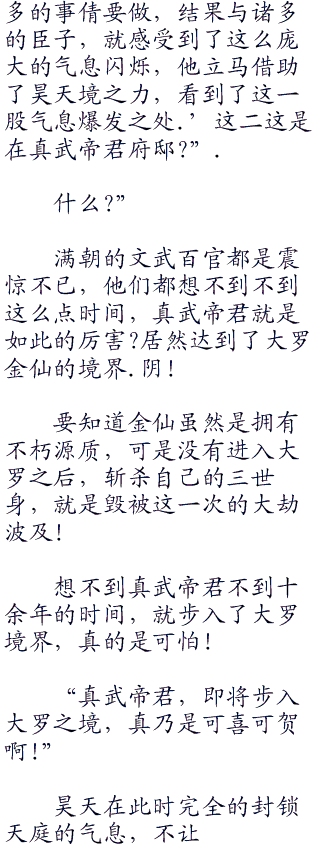 多的事倩要做，结果与诸多
的臣子，就感受到了这么庞
大的气息闪烁，他立马借助
了昊天境之力，看到了这一
股气息爆发之处.’这二这是
在真武帝君府邸?”.
什么?”
满朝的文武百官都是震
惊不已，他们都想不到不到
这么点时间，真武帝君就是
如此的厉害?居然达到了大罗
金仙的境界.阴!
要知道金仙虽然是拥有
不朽源质，可是没有进入大
罗之后，斩杀自己的三世
身，就是毁被这一次的大劫
波及!
想不到真武帝君不到十
余年的时间，就步入了大罗
境界，真的是可怕!
“真武帝君，即将步入
大罗之境，真乃是可喜可贺
啊!”
昊天在此时完全的封锁
天庭的气息，不让